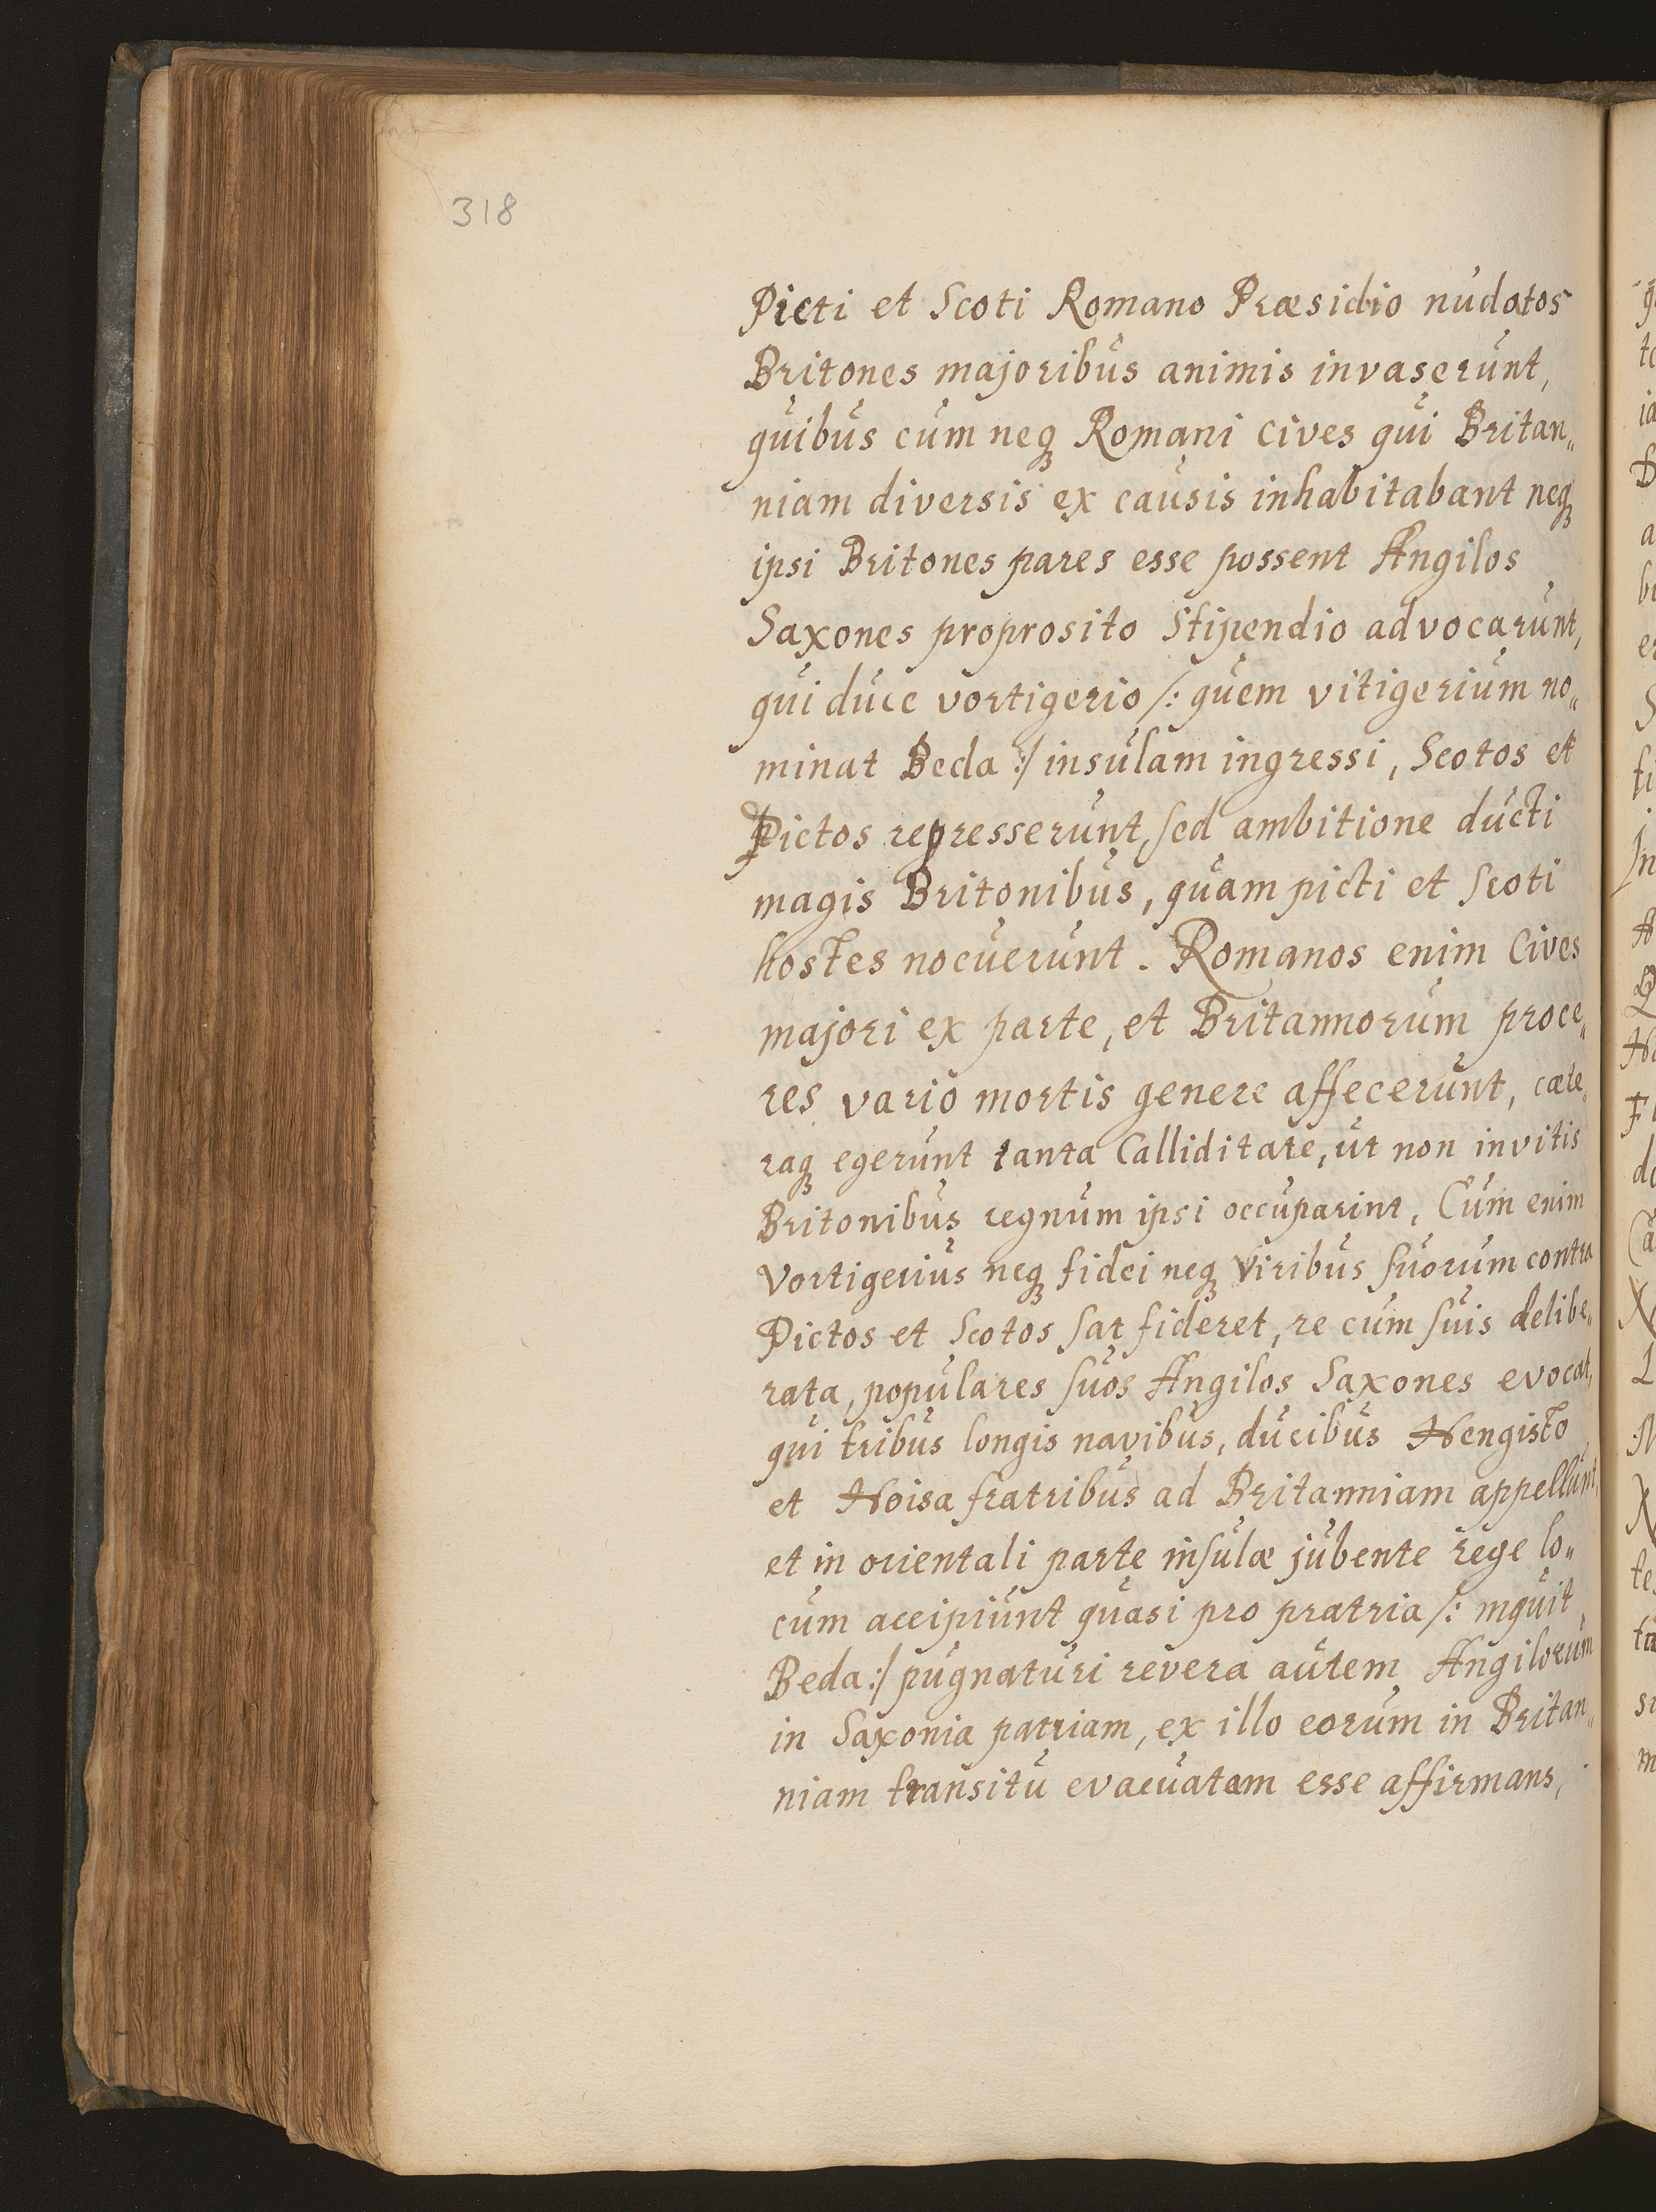 318
Picti et Scoti Romano Præsidio nudatos
Britones majoribus animis invaserunt,
quibus cum neq Romani cives qui Britan„
niam diversis ex causis inhabitabant neq
ipsi Britones pares esse possent Angilos
Saxones proprosito Stipendio advocarunt,
qui duce vortigerio /: quem vitigerium no„
minat Beda :/ insulam ingressi, Scotos et
Pictos represserunt, sed ambitione ducti
magis Britonibus, quam picti et Scoti
hostes nocuerunt. Romanos enim Cives
majori ex parte, et Britannorum proce„
res vario mortis genere affecerunt, cæte„
raq egerunt tanta Calliditate, ut non invitis
Britonibus regnum ipsi occuparint, Cum enim
Vortigerius neq fidei neq Viribus suorum contra
Pictos et Scotos sat fideret, re cum suis delibe„
rata, populares suos Angilos Saxones evocat,
qui tribus longis navibus, ducibus Hengisto
et Hoisa fratribus ad Britanniam appellunt,
et in orientali parte insulæ jubente rege lo„
cum accipiunt quasi pro pratria /: inquit
Beda :/ pugnaturi revera autem Angilorum
in Saxonia patriam, ex illo eorum in Britan„
niam transitu evacuatam esse affirmans,